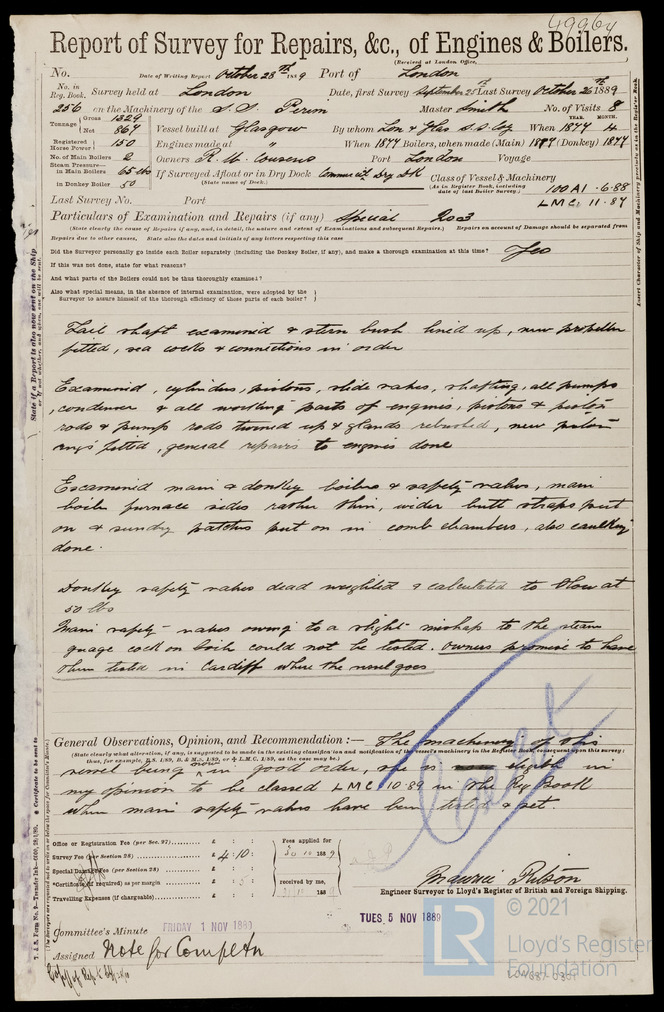 49964
Report of Survey for Repairs, &c., of Engines & Boilers.
(Received at London Office,
No. Date of Writing Report October 28th 1889 Port of London
No. in Reg. Book. Survey held at London Date, first Survey September 25th Last Survey October 26th 1889
256 on the Machinery of the S.S. Perim Master Smith No. of Visits 8
Tonnage Gross 1329 Net 864 Vessel built at Glasgow By whom Lon & Glas S.S. Coy When 1877 YEAR. 4 MONTH.
Registered Horse Power 150 Engines made at " When 1877 Boilers, when made (Main) 1877 (Donkey) 1877
No. of Main Boilers 2 Owners R. W. Cousens Port London Voyage
Steam Pressure in Main Boilers 65 lbs If Surveyed Afloat or in Dry Dock Commercial Dry Dk
(State name of Dock.)
in Donkey Boiler 50
Class of Vessel & Machinery
(As in Register Book, including date of last Boiler Survey.)
100 A1 . 6.88
LMC. 11.87
Last Survey No. Port
Particulars of Examination and Repairs (if any) Special
(State clearly the cause of Repairs if any, and, in detail, the nature and extent of Examinations and subsequent Repairs.) Repairs on account of Damage should be separated from
Repairs due to other causes, State also the dates and initials of any letters respecting this case
Did the Surveyor personally go inside each Boiler separately (including the Donkey Boiler, if any), and make a thorough examination at this time? Yes
If this was not done, state for what reasons?
And what parts of the Boilers could not be thus thoroughly examined?
Also what special means, in the absence of internal examination, were adopted by the
Surveyor to assure himself of the thorough efficiency of those parts of each boiler?
Tail shaft examined & stern bush lined up, new propeller
fitted, sea cocks & connections in order
Examined, cylinders, pistons, slide valves, shafting, all pumps
, condenser & all working parts of engines, pistons & piston
rods & pump rods turned up & glands rebushed, new piston
rings fitted, general repairs to engines done
Examined main & donkey boilers & safety valves, main
boiler furnace sides rather thin, wider butt straps put
on & sundry patches put on in comb chambers, also caulking
done.
Donkey safety valves dead weighted & calculated to blow at
50 lbs
Main safety valves owing to a slight mishap to the steam
guage cock on boiler could not be tested. Owners promise to have
them tested in Cardiff where the vessel goes
General Observations, Opinion, and Recommendation :— The machinery of this
(State clearly what alteration, if any, is suggested to be made in the existing classification and notification of the vessel's machinery in the Register Book, consequent upon this survey;
thus, for example, B.S. 1/89, B. & M.S. 1/89, or L.M.C. 1/89, as the case may be.)
vessel being now in good order, she is eligible in
my opinion to be classed LMC 10.89 in the Reg Book
when main safety valves have been tested & set.
Office or Registration Fee (per Sec. 27) £ : :
Survey Fee (per Section 28) £ 4 : 10 :
Special Damage Fee (per Section 28) £ : :
*Certificate (if required) as per margin £ : 5 :
Travelling Expenses (if chargeable) £ : :
Fees applied for
30 10 1889
received by me,
188
Engineer Surveyor to Lloyd's Register of British and Foreign Shipping.
Committee's Minute FRIDAY 1 NOV 1889 TUES 5 NOV 1889
Assigned Note for Completn
© 2021
LR Lloyd's Register Foundation